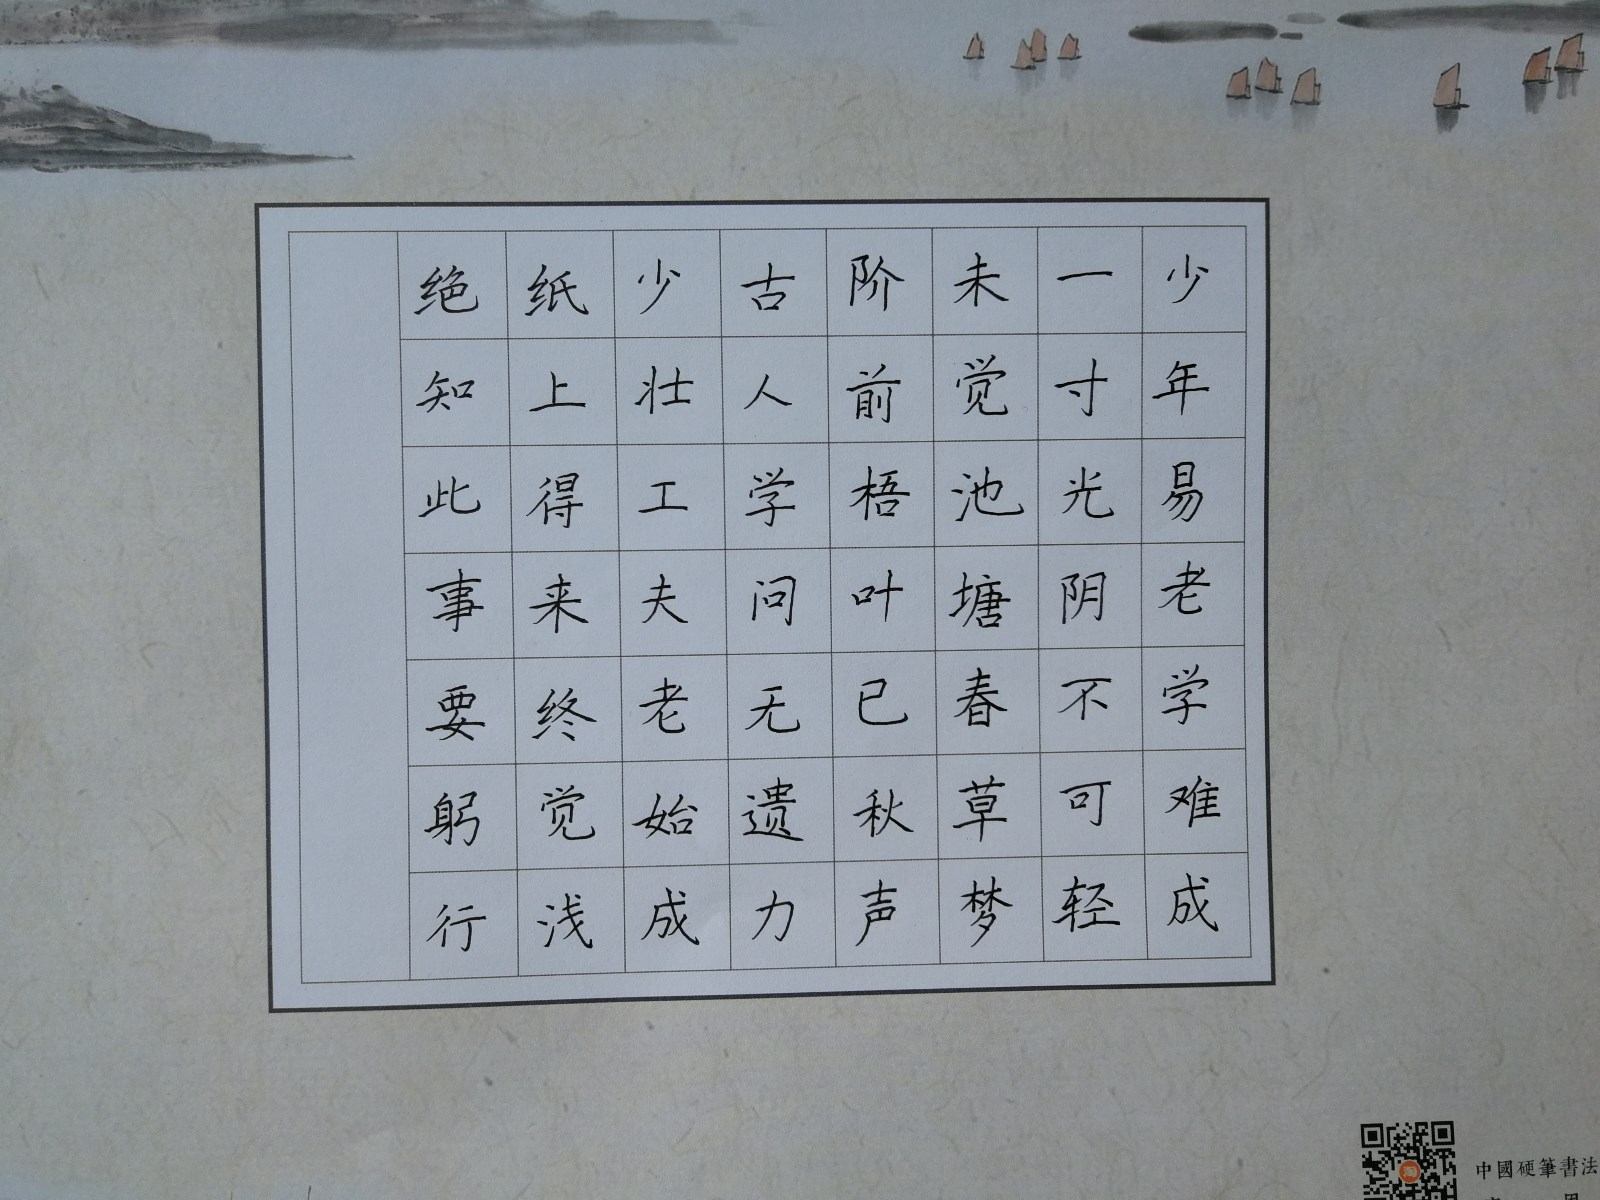 少年易老学难成
一寸光阴不可轻
未觉池塘春草梦
阶前梧叶已秋声
古人学问无遗力
少壮工夫老始成
纸上得来终觉浅
绝知此事要躬行
中國硬筆書法